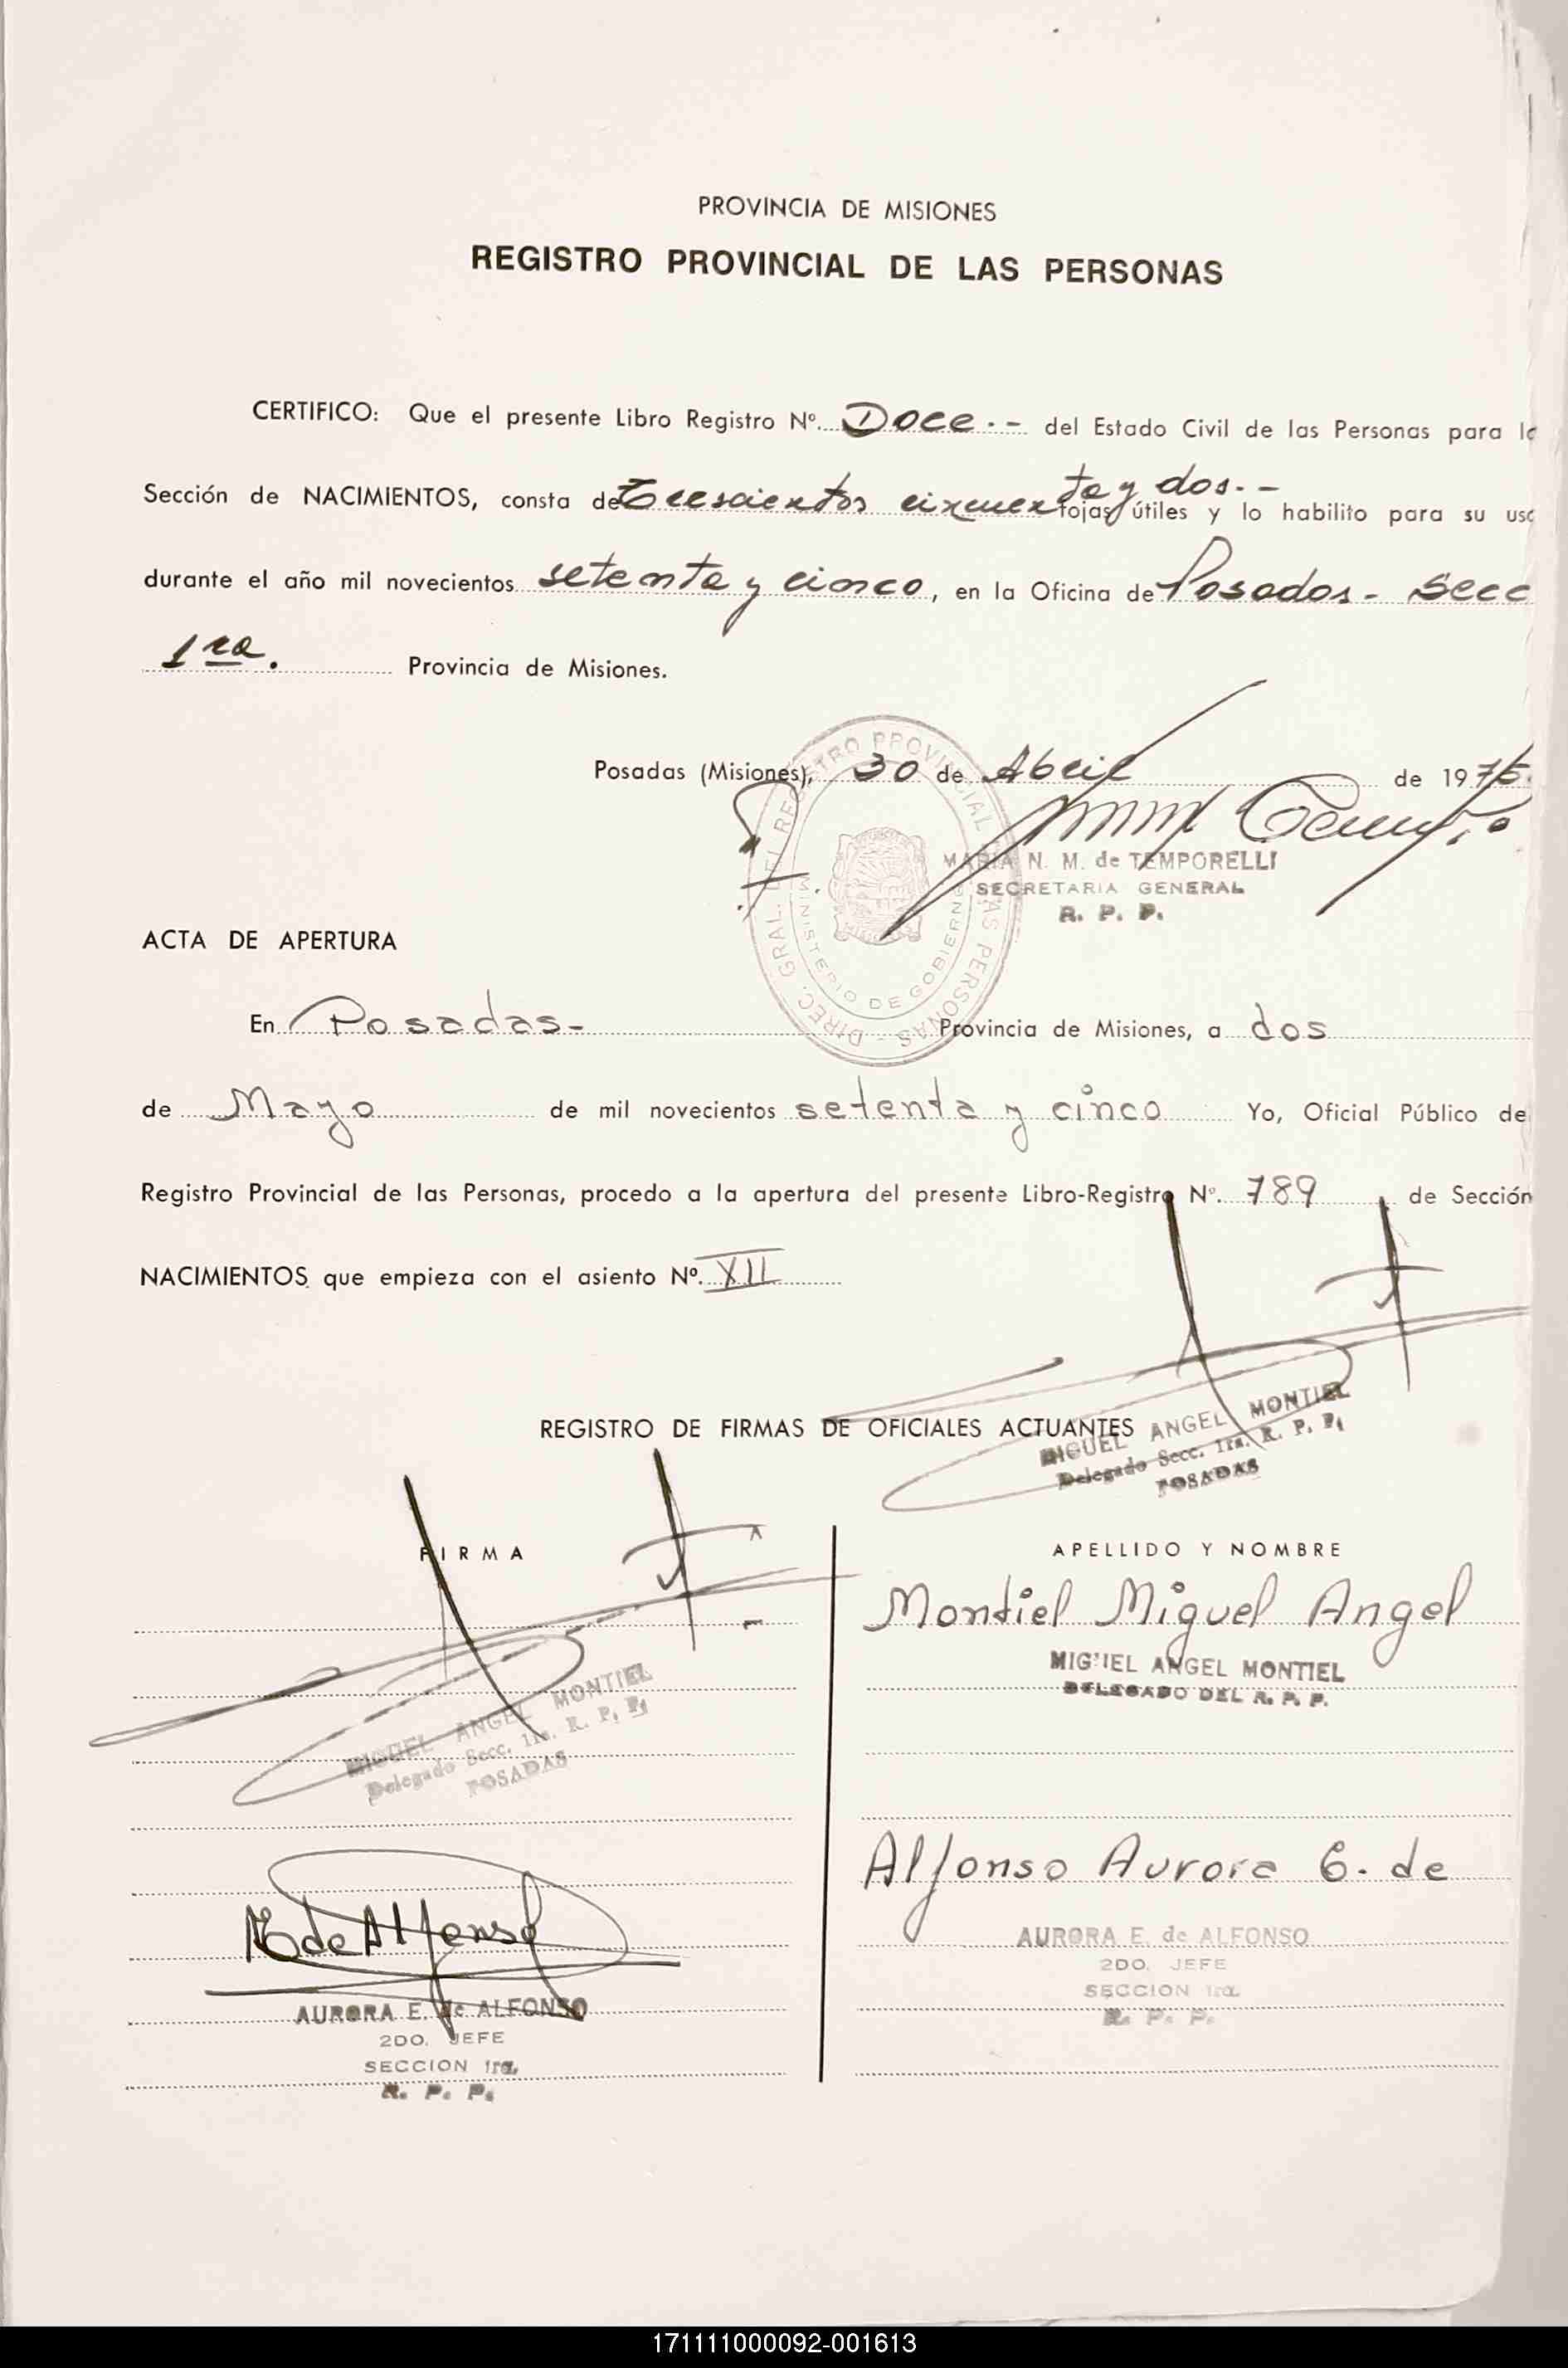 PROVINCIA DE MISIONES
REGISTRO PROVINCIAL DE LAS PERSONAS
CERTIFICO: Que el presente Libro Registro Nº. Doce.- del Estado Civil de las Personas para l
Sección de NACIMIENTOS, consta de Trescientos cincuenta y dos.- fojas útiles y lo habilito para su uso
durante el año mil novecientos setenta y cinco, en la Oficina de Posadas - Secc
1ra. Provincia de Misiones.
Posadas (Misiones), 30 de Abril de 1975.
DIREC. GRAL. DEL REGISTRO PROVINCIAL DE LAS PERSONAS -
MINISTERIO DE GOBIERNO
MARIA N. M. de TEMPORELLI
SECRETARIA GENERAL
R. P. P.
ACTA DE APERTURA
En Posadas- Provincia de Misiones, a dos
de Mayo de mil novecientos setenta y cinco Yo, Oficial Público de
Registro Provincial de las Personas, procedo a la apertura del presente Libro-Registro Nº. 789 de Sección
NACIMIENTOS que empieza con el asiento Nº. XII
REGISTRO DE FIRMAS DE OFICIALES ACTUANTES
MIGUEL ANGEL MONTIEL
Delegado Secc. 1ra. R. P. P.
POSADAS
FIRMA
APELLIDO Y NOMBRE
Montiel Miguel Angel
MIGUEL ANGEL MONTIEL
DELEGADO DEL R. P. P.
MIGUEL ANGEL MONTIEL
Delegado Secc. 1ra. R. P. P.
POSADAS
Alfonso Aurora E. de
AURORA E. de ALFONSO
2DO. JEFE
SECCION 1ra.
R. P. P.
E de Alfonso
AURORA E. de ALFONSO
2DO. JEFE
SECCION 1ra.
R. P. P.
171111000092-001613